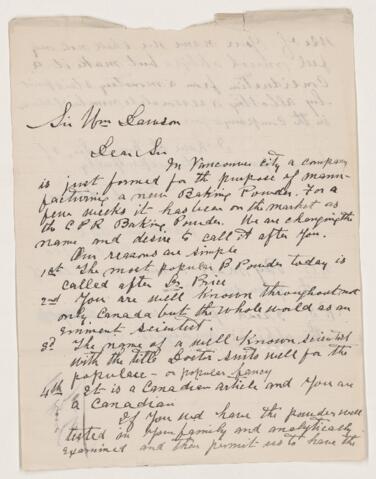 Sir Wm Dawson
Dear Sir
In Vancouver City a company
is just formed for the purpose of manu-
facturing a new Baking Powder. For a
few weeks it has been on the market as
the C P R Baking Powder. We are changing the
name and desire to call it after You.
Our reasons are simple
1st The most popular B Powder today is
called after Dr Price
2nd You are well known throughout not
only Canada but the whole world as an
Eminent Scientist.
3d The name of a well known scientist
with the title Doctor suits well for the
populace - or popular fancy
4th It is a Canadian article and You are
a Canadian
If You wd have the powder well
tested in Your family and analytically
examined and then permit us to have the